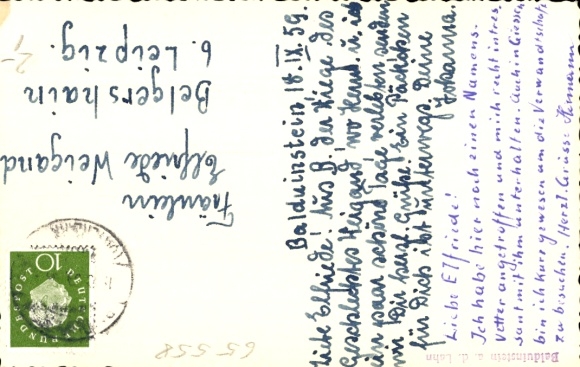 Balduinstein 18.IX.59.
Liebe Elfriede! Aus B. der Wiege des
Geschlechts Weigand, wo Herm. u. ich
ein paar schöne Tage verlebten, senden
wir Dir herzl. Grüße. Ein Päckchen
für Dich ist unterwegs. Deine
Johanna.
Liebe Elfriede!
Ich habe hier noch einen Namens-
Vetter angetroffen und mich recht intres-
sant mit ihm unterhalten. Auch in Giessen
bin ich kurz gewesen um die Verwandtschaft
zu besuchen. Herzl. Grüsse Hermann
Balduinstein a. d. Lahn
Fräulein
Elfriede Weigand
Belgershain
b. Leipzig.
DEUTSCHE
BUNDESPOST
10
65 558